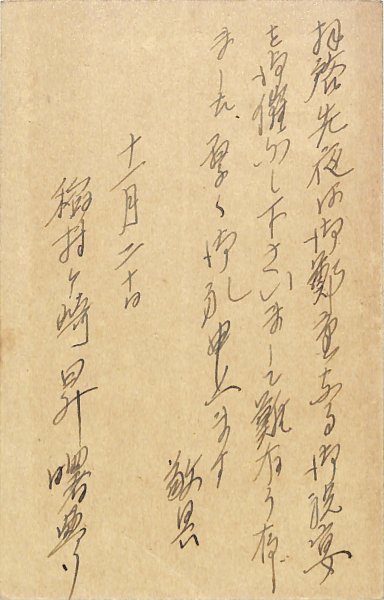 拝啓先夜は御鄭重なる御祝宴
を御催し下さいまして難有う存
ました、厚く御礼申上ます
敬具
十一月二十日
稲村ケ崎 昇曙夢